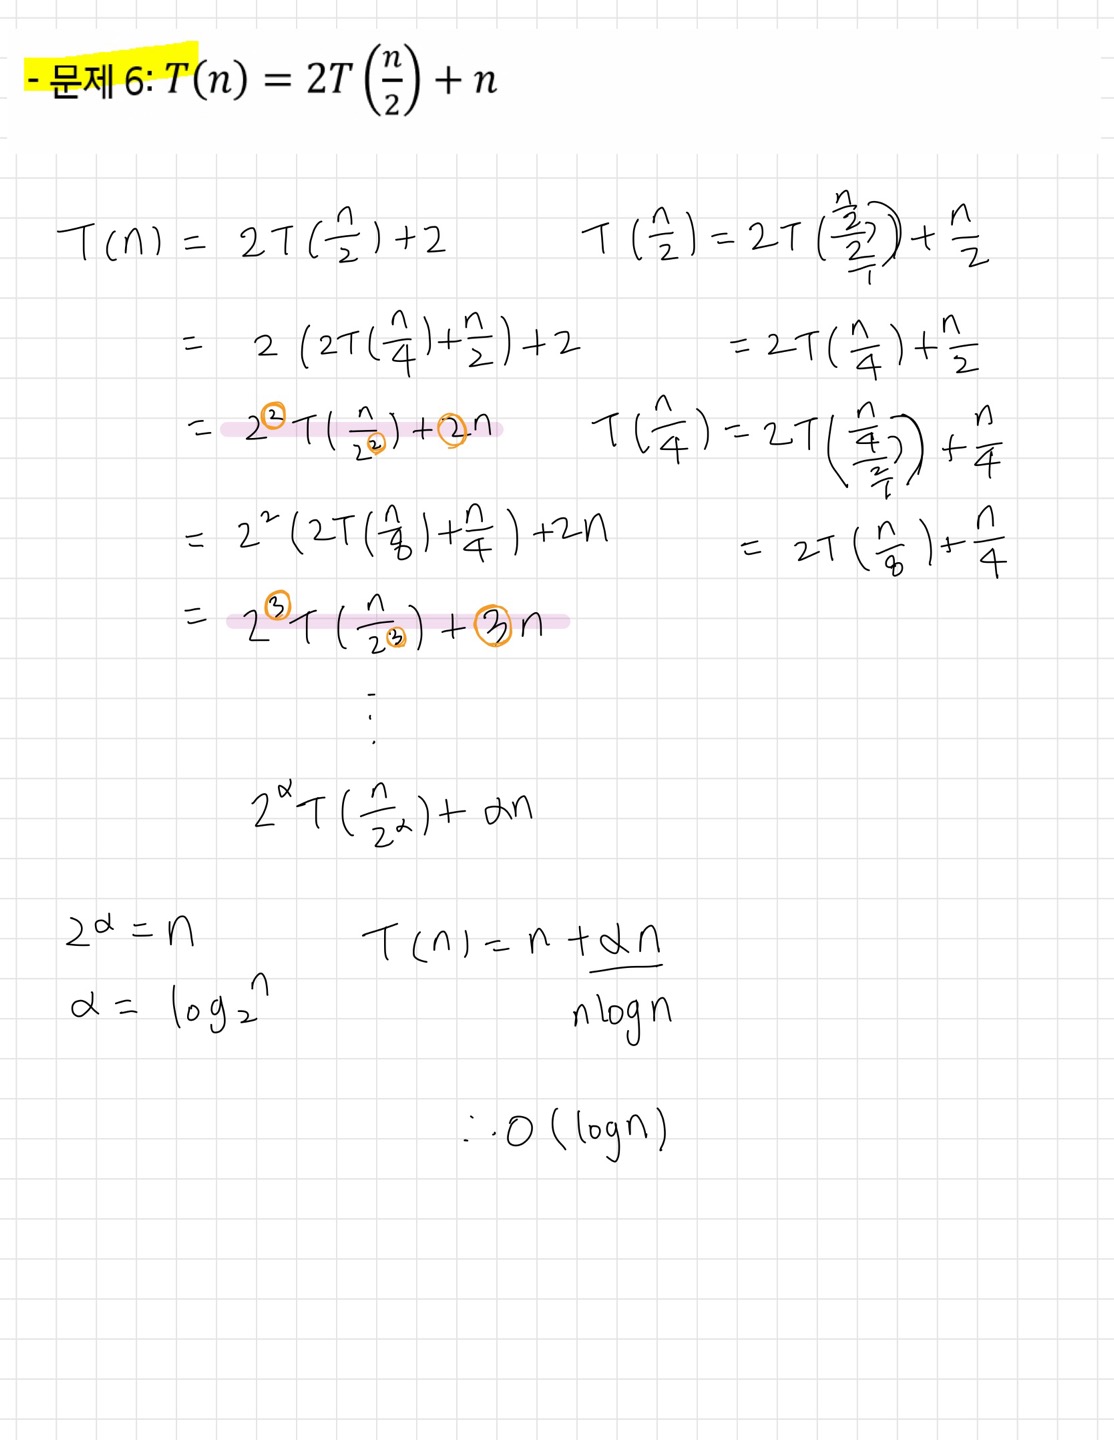 - 문제 6: T(n) = 2T(n/2) + n
T(n) = 2T(n/2)+2
= 2(2T(n/4)+n/2)+2
= 2²T(n/2²)+2n
= 2²(2T(n/8)+n/4)+2n
= 2³T(n/2³)+3n
⋮
2^αT(n/2^α)+αn
T(n/2) = 2T((n/2)/(2/1))+n/2
= 2T(n/4)+n/2
T(n/4) = 2T((n/4)/(2/1))+n/4
= 2T(n/8)+n/4
2^α = n
α = log₂ⁿ
T(n) = n + αn
nlogn
∴ O(logn)